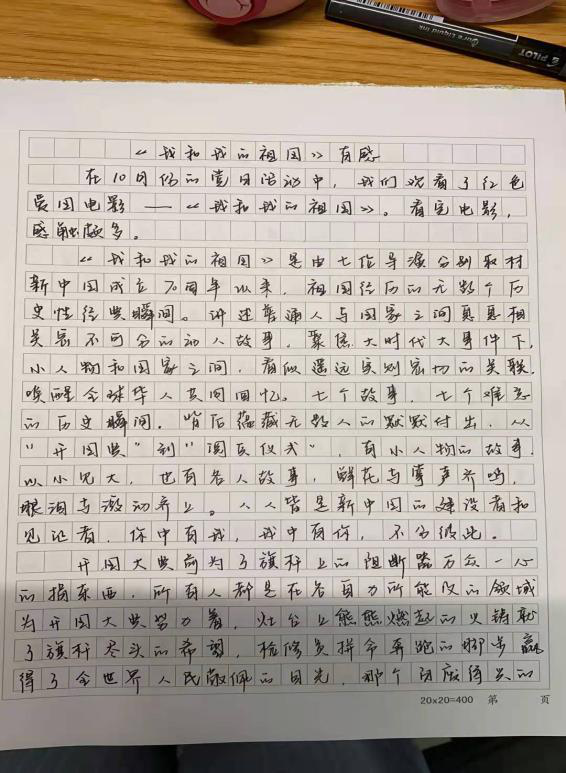 Pure Liquid Ink
PILOT
《我和我的祖国》有感
在10月份的党日活动中，我们观看了红色
爱国电影——《我和我的祖国》。看完电影，
感触颇多。
《我和我的祖国》是由七位导演分别取材
新中国成立70周年以来，祖国经历的无数个历
史性经典瞬间。讲述普通人与国家之间息息相
关密不可分的动人故事，聚焦大时代大事件下，
小人物和国家之间，看似遥远实则密切的关联，
唤醒全球华人共同回忆。七个故事，七个难忘
的历史瞬间，背后蕴藏无数人的默默付出，从
"开国典"到"阅兵仪式"，有小人物的故事，
以小见大，也有名人故事，鲜花与掌声齐鸣，
眼泪与激动并上。人人皆是新中国的建设者和
见证者，你中有我，我中有你，不分彼此。
开国大典前为了旗杆上的阻断器万众一心
的捐东西，所有人都是在各自力所能及的领域
为开国大典努力着，灶台上熊熊燃起的火铸就
了旗杆尽头的希望，检修员拼命奔跑的脚步赢
得了全世界人民敬佩的目光，那个百废待兴的
20×20=400 第 页